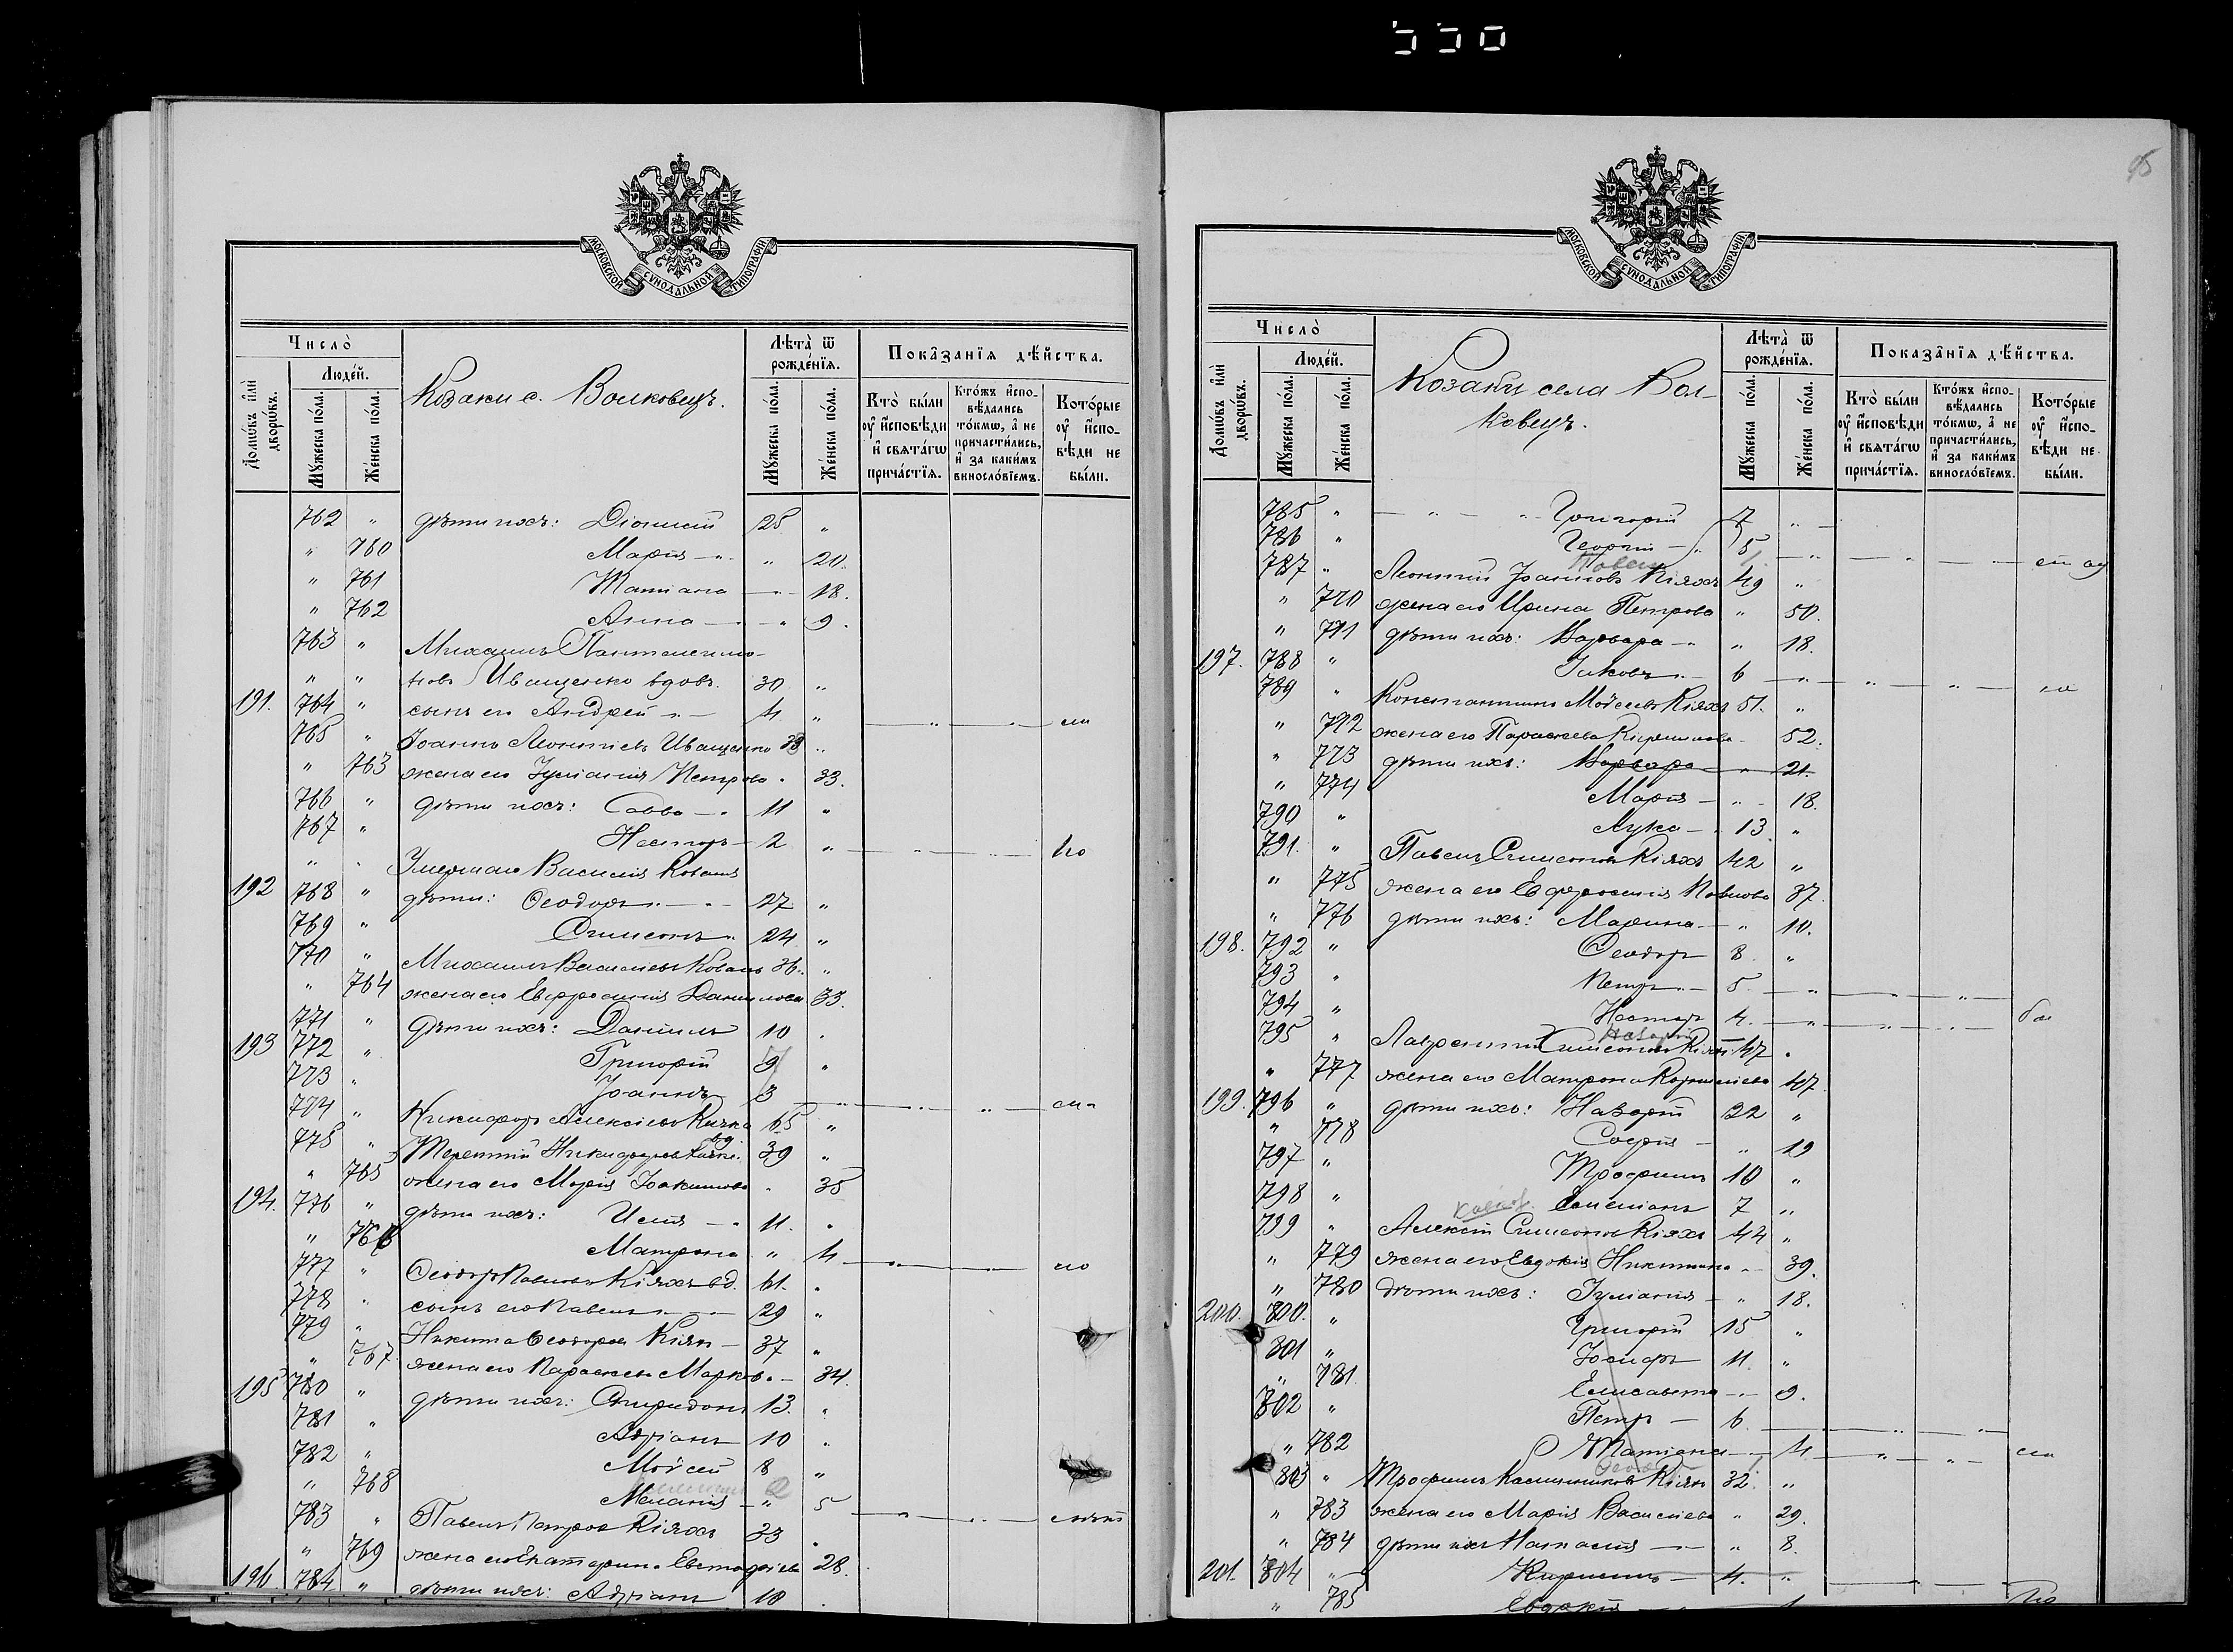 550
95
МОСКОВСКОЙ СУНОДАЛЬНОЙ ТИПОГРАФІИ
Число̀
Домѡ́въ и҆лѝ дворѡ́въ.
Люде́й.
Мꙋ́жеска по́ла.
Же́нска по́ла.
Козаки с. Волковецъ.
Лѣта̀ ѿ рожде́нїѧ.
Мꙋ́жеска по́ла.
Же́нска по́ла.
Показа̂нїѧ дѣ́йства.
Кто̀ бы́ли оу҆ и҆сповѣди и҆ свѧта́гѡ прича́стїѧ.
Кто́жъ и҆спо-вѣдались то́кмѡ, а҆ не причасти́лись, и҆ за каки́мъ винослові́емъ.
Кото́рые оу҆ и҆спо-вѣди не бы́ли.
762 " дѣти ихъ: Діонисій 25 "
" 760 Марія " 20.
" 761 Татіана 18.
" 762 Анна " 9.
763 " Михаилъ Пантелеимо-
" " новъ Иващенко вдов. 30 "
191. 764 " сынъ его Андрей 4 "
765 " Іоаннъ Леонтіевъ Иващенко 38 "
" 763 жена его Іуліанія Петрова 33.
766 " дѣти ихъ: Савва 11 "
767 " Несторъ 2 "
" Умершаго Василія Коваля
192 768 " дѣти: Ѳеодоръ 27 "
769 " Симеонъ 24 "
770 " Михаилъ Васильевъ Коваль 36. "
" 764 жена его Евфросинія Данилова 33.
771 " дѣти ихъ: Даніилъ 10
193 772 " Григорій 9 "
773 " Іоаннъ 3
774 " Никифоръ Алексіевъ 65 "
775 " Терентій Никифоровъ 39 "
" 765 жена его Марія Іоакимова 35
194. 776 " дѣти ихъ: Илія 11.
" 766 Матрона " 4
777 " Ѳеодоръ Павловъ Кіяхъ вд. 61.
778 " сынъ его Павелъ 29 "
779 " Никита Ѳеодоровъ Кіях 37 "
" 767 жена его Параскева Марков. 34.
195 780 " дѣти ихъ: Спиридонъ 13.
781 " Адріанъ 10
782 " Моѵсей 8 "
" 768 Меланія " 5
783 " Павелъ Петровъ Кіяхъ 33
" 769 жена его Екатерина Евстафіева 28.
196. 784 " дѣти ихъ: Адріанъ 10
МОСКОВСКОЙ СУНОДАЛЬНОЙ ТИПОГРАФІИ
Число̀
Домѡ́въ и҆лѝ дворѡ́въ.
Люде́й.
Мꙋ́жеска по́ла.
Же́нска по́ла.
Козаки села Вол-
ковецъ.
Лѣта̀ ѿ рожде́нїѧ.
Мꙋ́жеска по́ла.
Же́нска по́ла.
Показа̂нїѧ дѣ́йства.
Кто̀ бы́ли оу҆ и҆сповѣди и҆ свѧта́гѡ прича́стїѧ.
Кто́жъ и҆спо-вѣдались то́кмѡ, а҆ не причасти́лись, и҆ за каки́мъ винослові́емъ.
Кото́рые оу҆ и҆спо-вѣди не бы́ли.
785 " Григорій 7 "
786 " Георгій 5
787 " Леонтій Іоанновъ Кіяхъ 49 "
" 770 жена его Ирина Петрова " 50.
" 771 дѣти ихъ: Варвара " 18.
197. 788 " Іаковъ 6 "
789 " Константинъ Моѵсеевъ Кіяхъ 51. "
" 772 жена его Параскева Кириллова 52.
" 773 дѣти ихъ: Варвара " 21.
" 774 Марія " 18.
790 " Лука 13 "
791. " Павелъ Симеоновъ Кіяхъ 42 "
" 775 жена его Евфросинія Павлова 37.
" 776 дѣти ихъ: Марина " 10.
198. 792 " Ѳеодоръ 8 "
793 " Петръ 5
794 " Несторъ 4.
Назарій
795 " Лаврентій Симеоновъ Кіяхъ 47
" 777 жена его Матрона Корнилиева 47
199. 796 " дѣти ихъ: Назарій 22 "
" 778 Софія " 19
797 " Трофимъ 10 "
798 " Емеліанъ 7 "
799 " Алексій Симеоновъ Кіяхъ 44 "
" 779 жена его Евдокія Никитина 39.
" 780 дѣти ихъ: Іуліанія " 18.
200. 800. " Григорій 15 "
801 " Іосифъ 11. "
" 781 Елисавета 9.
802 " Петръ 6
" 782 Татіана 4.
803 " Трофимъ Кіяхъ 32. "
" 783 жена его Марія Василіева " 29.
" 784 дѣти ихъ Анастасія " 8.
201. 804 " Кириллъ 4. "
" 785 Евдокія